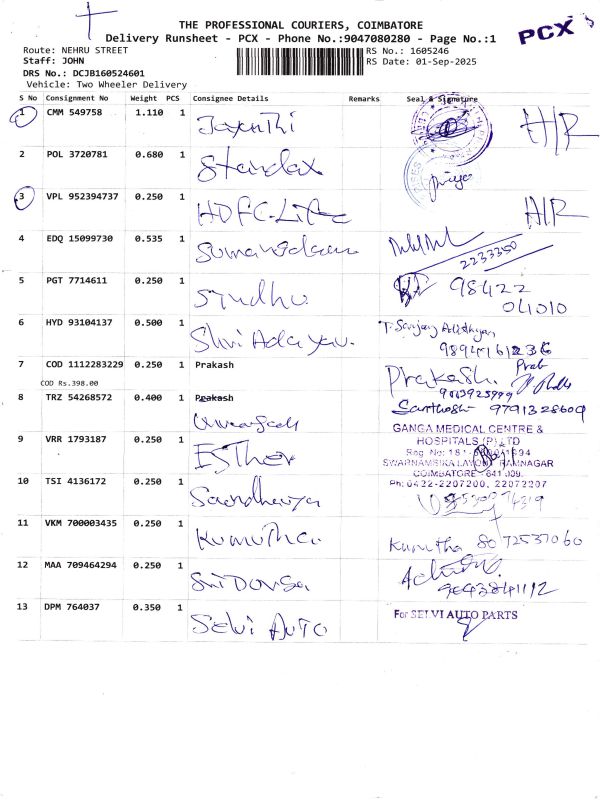 THE PROFESSIONAL COURIERS, COIMBATORE
Delivery Runsheet - PCX - Phone No.:9047080280 - Page No.:1
PCX
Route: NEHRU STREET
RS No.: 1605246
Staff: JOHN
RS Date: 01-Sep-2025
DRS No.: DCJB160524601
Vehicle: Two Wheeler Delivery
S No Consignment No Weight PCS Consignee Details Remarks Seal & Signature
1 CMM 549758 1.110 1 Jayanthi
2 POL 3720781 0.680 1 Standax
3 VPL 952394737 0.250 1 HDFC-Life
4 EDQ 15099730 0.535 1
2233350
5 PGT 7714611 0.250 1 Sindhu 98422
04010
6 HYD 93104137 0.500 1 Shri
7 COD 1112283229 0.250 1 Prakash Prakash.
COD Rs.398.00
8 TRZ 54268572 0.400 1 Prakash Santhosh 9791328609
GANGA MEDICAL CENTRE &
HOSPITALS (P) LTD
9 VRR 1793187 0.250 1 Esther
SWARNAMBIKA LAYOUT RAMNAGAR
COIMBATORE - 641 009.
10 TSI 4136172 0.250 1 Ph: 0422-2207200, 22072207
11 VKM 700003435 0.250 1 Kumutha Kumutha 80 72537060
12 MAA 709464294 0.250 1 Sri Durga
13 DPM 764037 0.350 1 Selvi Auto For SELVI AUTO PARTS